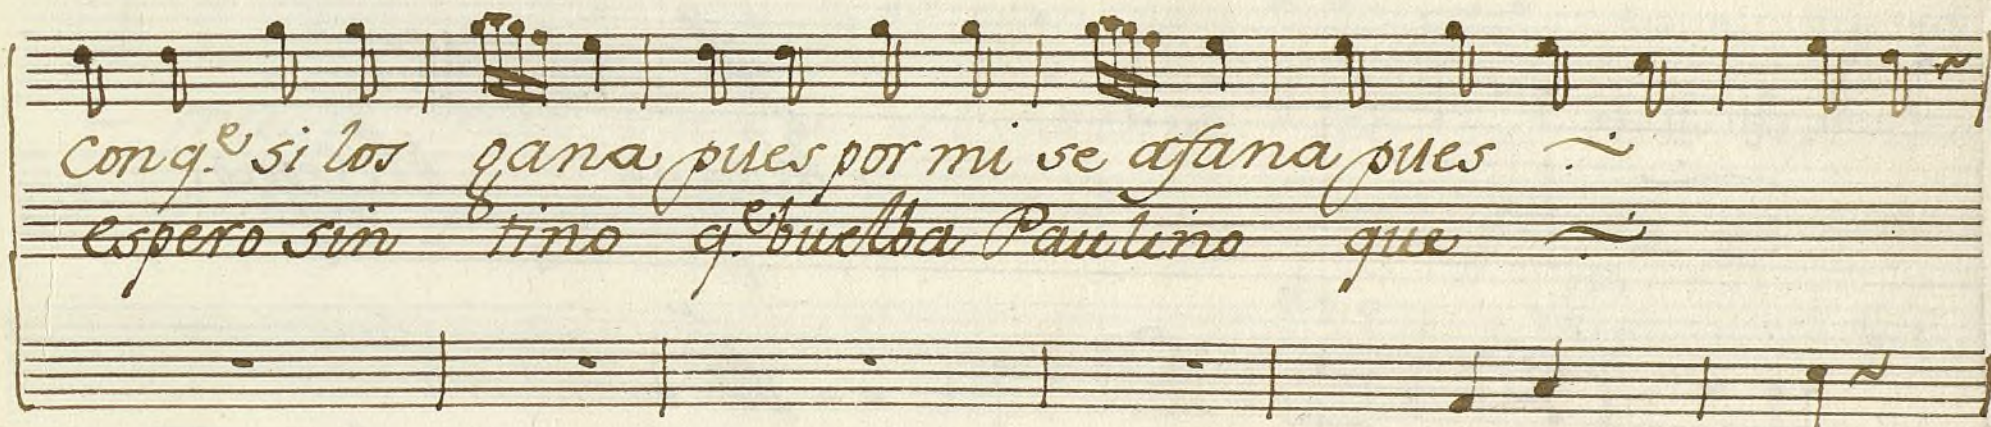 conq.e si los gana pues por mi se afana pues ~
espero sin tino q.e buelba Paulino que ~